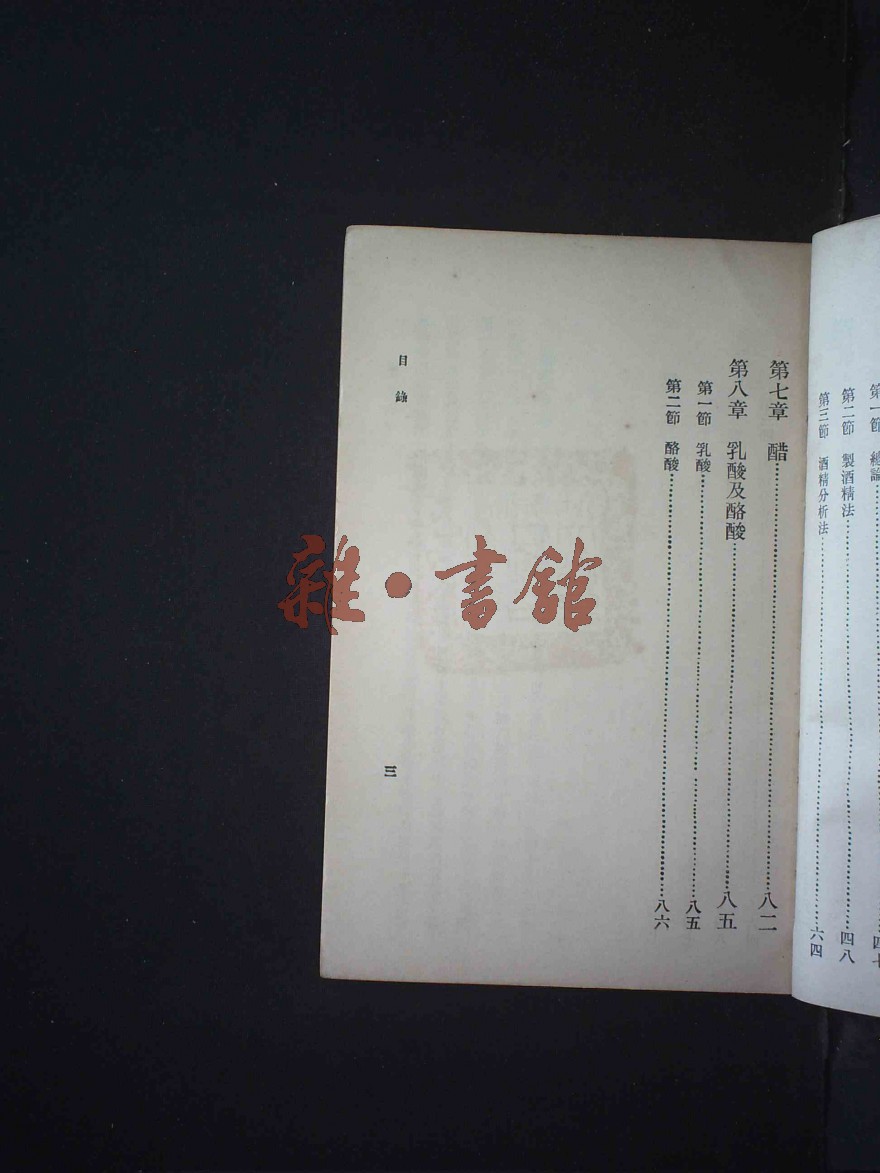 第一節　總論
第二節　製酒精法……四八
第三節　酒精分析法……六四
第七章　醋……八二
第八章　乳酸及酪酸……八五
第一節　乳酸……八五
第二節　酪酸……八六
目錄
三
雜·書館